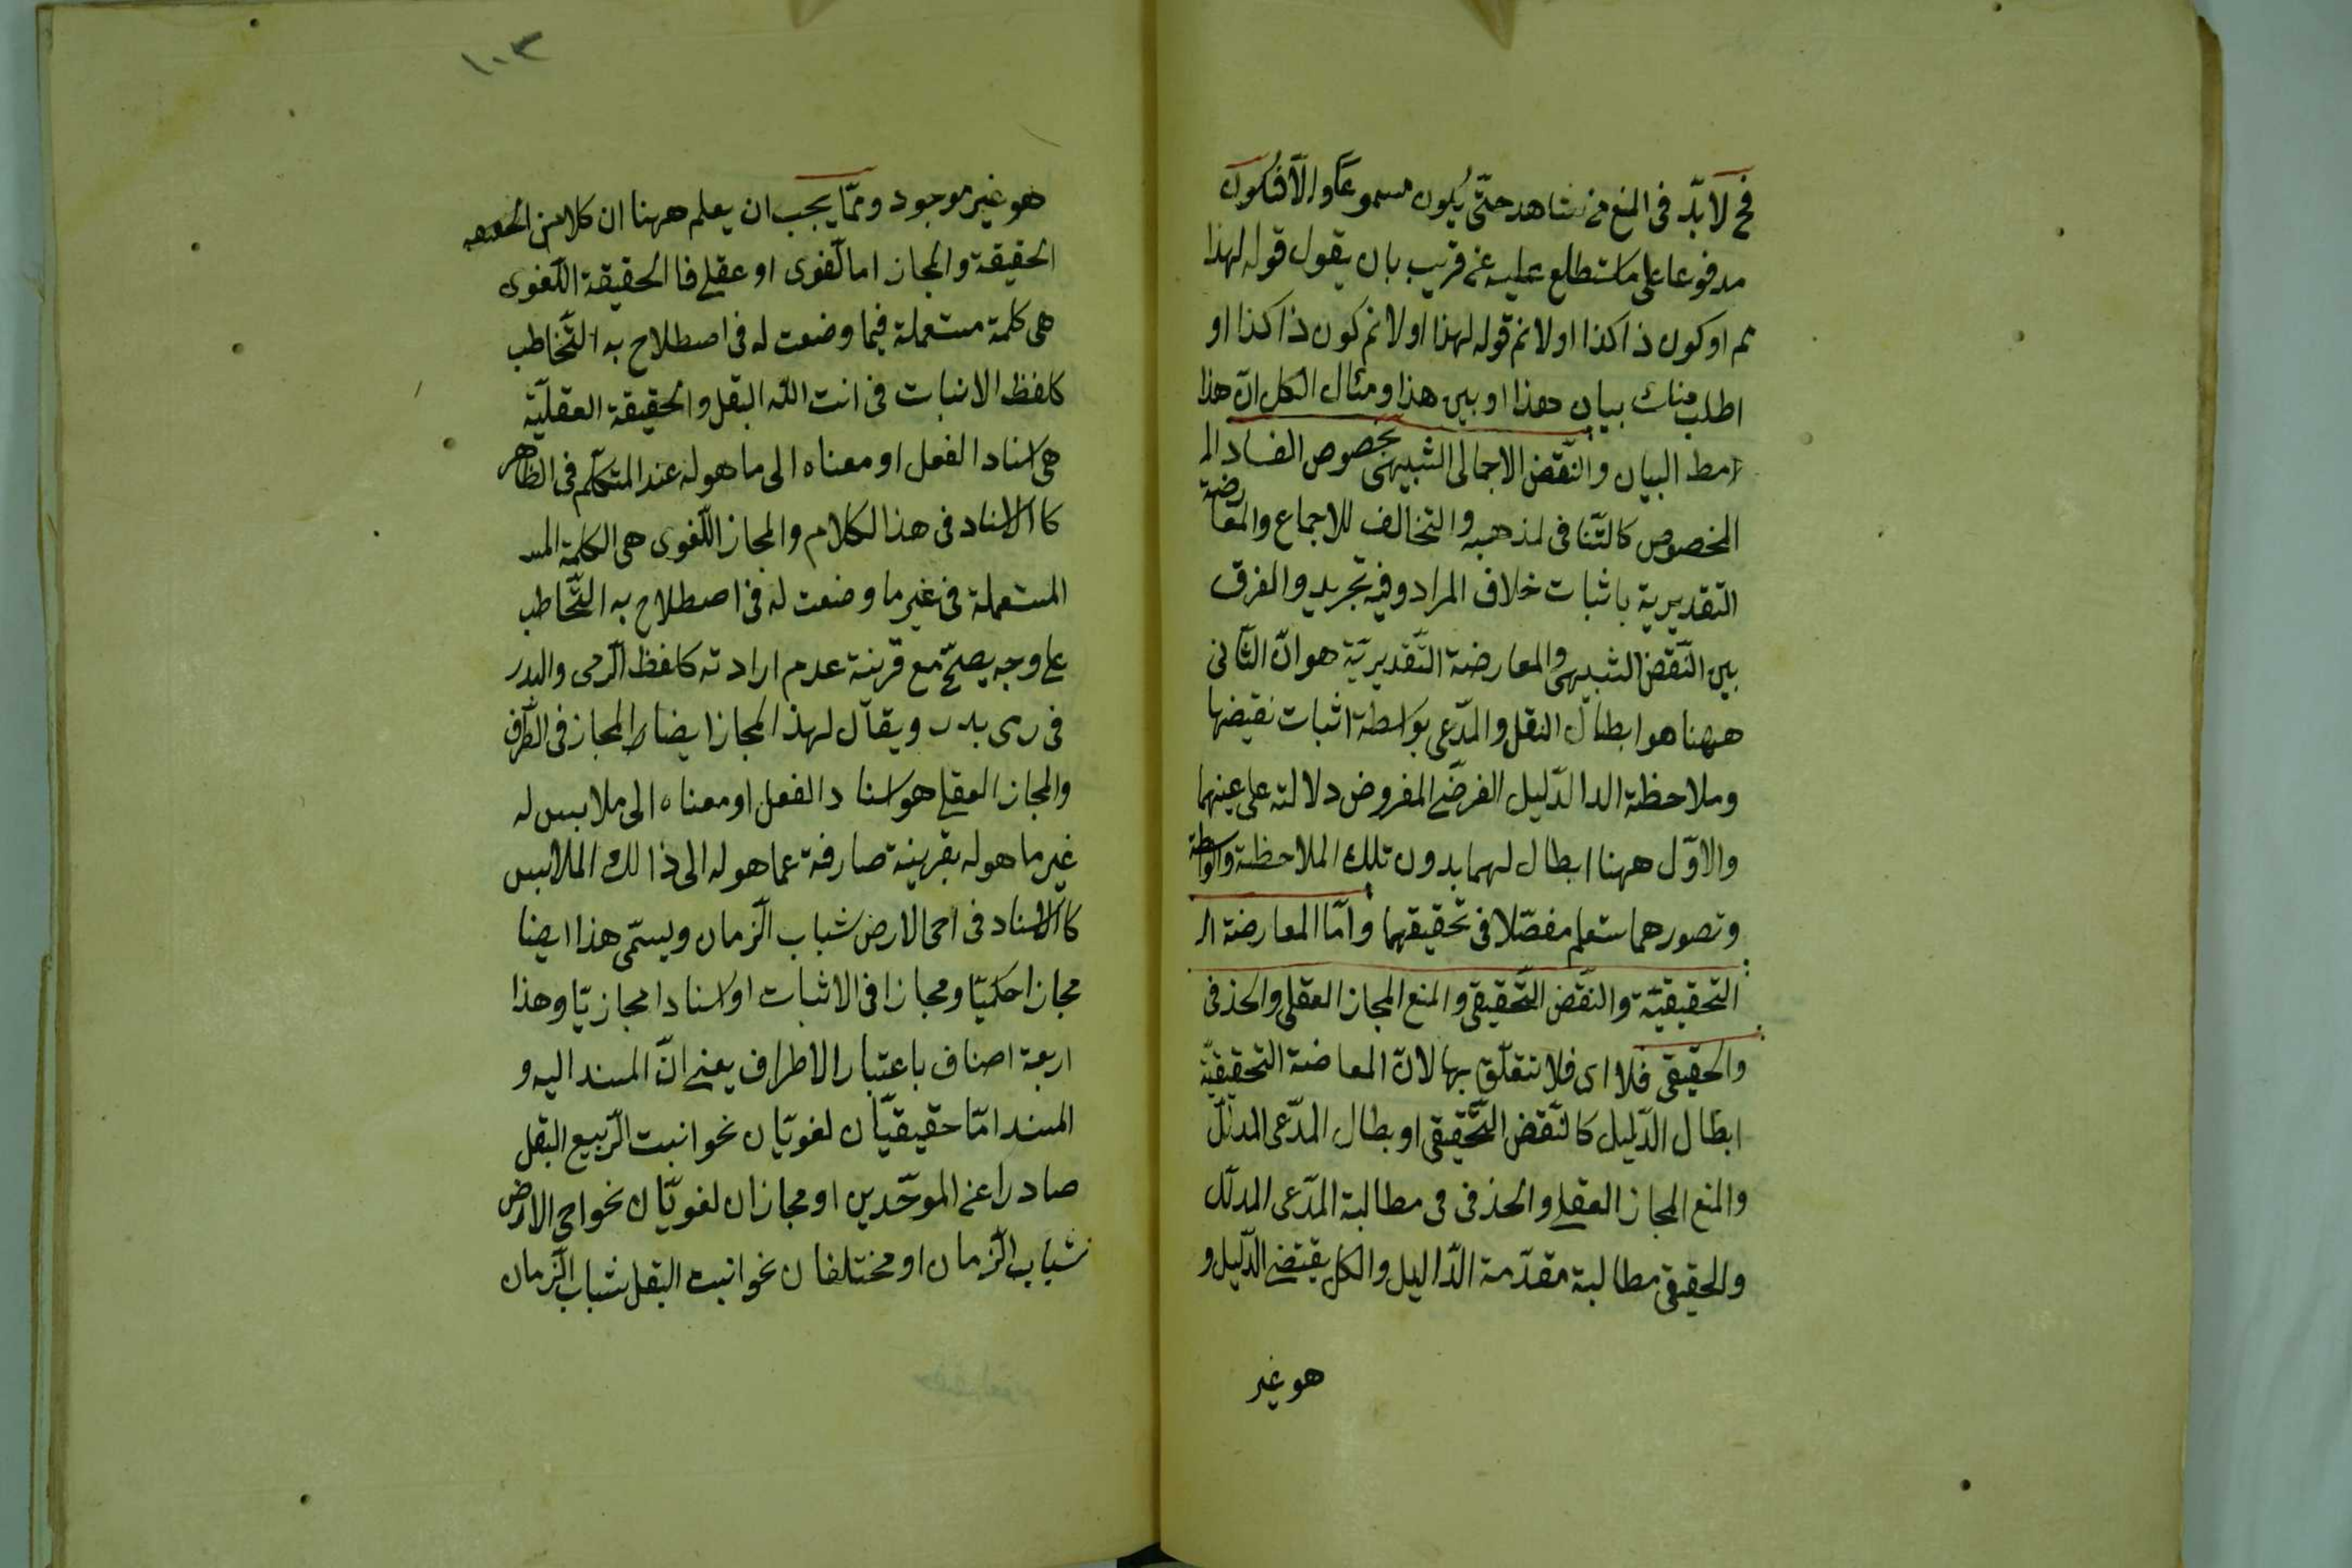 فح لا بدّ فى المنع من شاهد حتّى يكون مسموعا والّا فيكون
مدفوعا على ما ستطلع عليه عن قريب بان يقول قوله لهذا
مم او كون ذا كذا او لا نم قوله لهذا او لا نم كون ذا كذا او
اطلب منك بيان هذا او بين هذا ومثال الكل انّ هذا
مط البيان والنّقض الاجمالى الشبيهى بخصوص الفساد الم
المخصوص كالتّنافى لمذهبه والتخالف للاجماع والمعارضة
التقديرية باثبات خلاف المراد وفيه تجريد والفرق
بين النّقض الشبيهى والمعارضة التّقديريّة هو انّ الثّانى
ههنا هو ابطال النقل والمدّعى بواسطة اثبات نقيضها
وملاحظة الدا الدّليل الفرضى المفروض دلالته على عينهما
والاوّل ههنا ابطال لهما بدون تلك الملاحظة والواسطة
وتصورهما ستعلم مفصّلا فى تحقيقهما وامّا المعارضة ال
التحقيقيّة والنقض التّحقيقى والمنع المجاز العقلى والحذفى
والحقيقى فلا اى فلا تتعلّق بها لانّ المعاضة التحقيقيّة
ابطال الدّليل كالنّقض التّحقيقى او بطال المدّعى المدلّل
والمنع المجاز العقلى والحذفى فى مطالبة المدّعى المدلّل
والحقيقى مطالبة مقدّمة الدّاليل والكل يقتضى الدّليل و
هو غير
١٠٣
هو غير موجود وممّا يجب ان يعلم ههنا ان كلا من الحقيقه
الحقيقة والمجاز اما لّغوى او عقلى فا الحقيقة اللّغوى
هى كلمة مستعملة فيما وضعت له فى اصطلاح به التّخاطب
كلفظ الانبات فى انبت اللّه البقل والحقيقة العقليّة
هى اسناد الفعل او معناه الى ما هو له عند المتكلّم فى الظاهر
كا الاسناد فى هذا الكلام والمجاز اللّغوى هى الكلمة المس
المستعملة فى غير ما وضعت له فى اصطلاح به التّخاطب
على وجه يصحّ مع قرينة عدم ارادته كلفظ الرّمى والبدر
فى رمى بدر ويقال لهذ المجاز ايضا المجاز فى الطّرف
والمجاز العقلى هو اسناد الفعل او معناه الى ملابس له
غير ما هو له بقرينة صارفة عما هو له الى ذالك الملابس
كا الاسناد فى احى الارض شباب الّزمان ويسمّى هذا ايضا
مجازا حكميّا ومجازا فى الاثبات او اسنادا مجازيّا وهذا
اربعة اصناف باعتبار الاطراف يعنى انّ المسند اليه و
المسند امّا حقيقيّان لغويّان نحو انبت الرّبيع البقل
صادرا عن الموحّدين او مجازان لغويّان نحو احى الارض
شباب الزّمان او مختلفان نحو انبت البقل شباب الزّمان